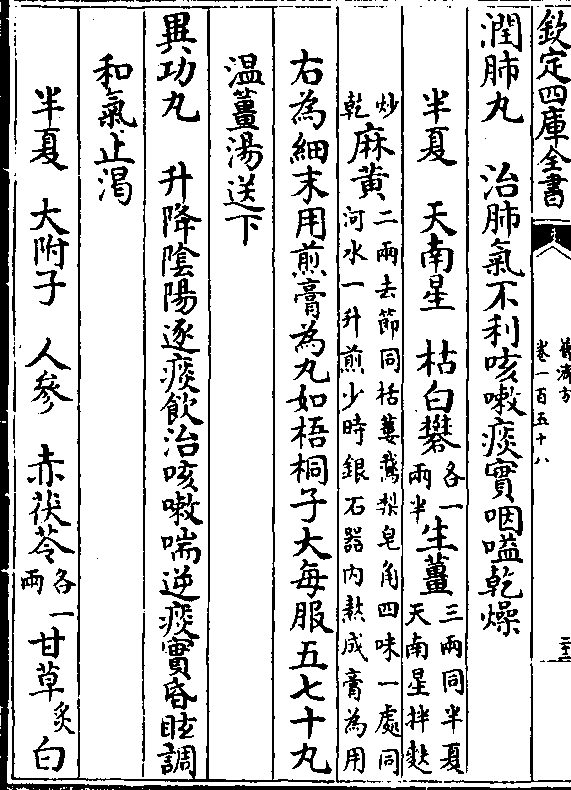 欽定四庫全書
普濟方
卷一百五十八
潤肺丸　治肺氣不利咳嗽痰實咽嗌乾燥
半夏　天南星　枯白礬各一兩半生薑三兩同半夏天南星拌麩
炒乾麻黄二兩去節同栝蔞鵝梨皂角四味一處同河水一升煎少時銀石器内熬成膏為用
右為細末用煎膏為丸如梧桐子大每服五七十丸
温薑湯送下
異功丸　升降陰陽逐痰飲治咳嗽喘逆痰實昏眩調
和氣止渴
半夏　大附子　人參　赤茯苓各一兩甘草炙白